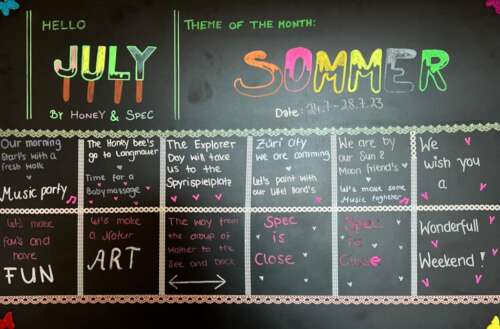 HELLO
JULY
BY HONEY & SPEC
THEME OF THE MONTH:
SOMMER
Date: 24.7 - 28.7.23
Our morning
Starts with a
fresh walk
Music party
The Honey bee's
go to Langmauer
Time for a
Babymassage
The Explorer
Day will take
us to the
Spyrispielplatz
Züri City
we are comming
Let's paint with
our hand's
We are by
our Sun &
Moon friend's
Let's make some
Music togheter
We
wish you
a
Let's make
and
have
FUN
Let's make
a Natur
ART
The way from
the group of
to the
See and back
Spec
is
Close
Spec
is
Close
Wonderfull
Weekend !